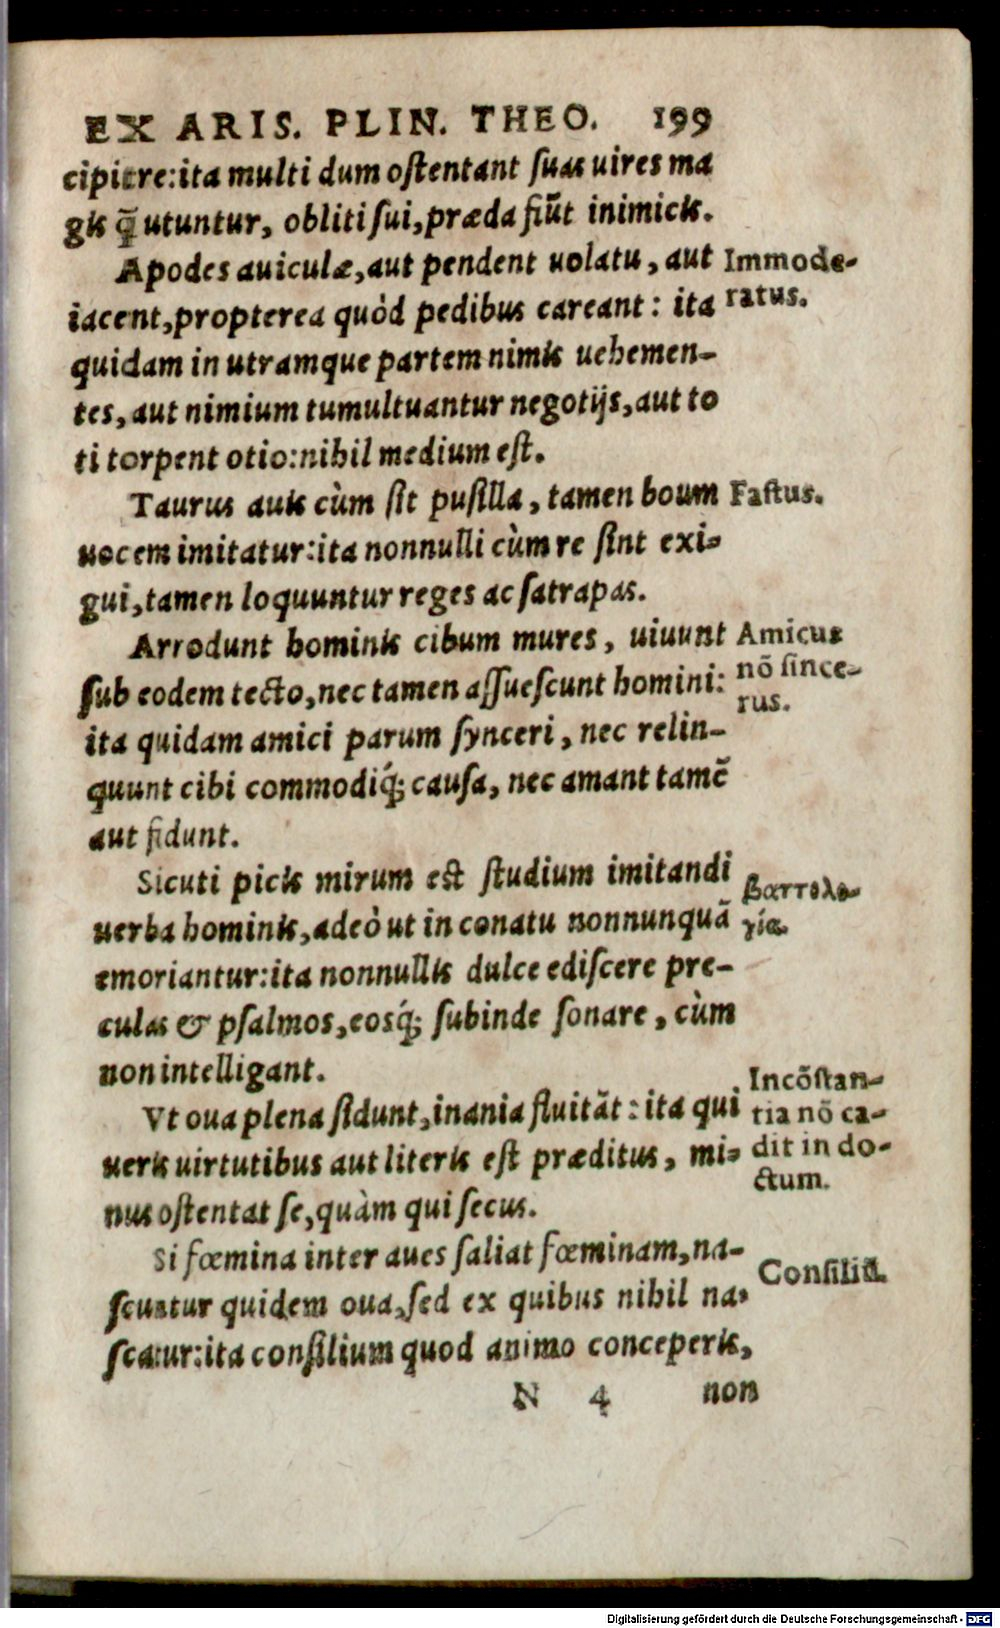 EX ARIS. PLIN. THEO. 199
cipitre:ita multi dum ostentant suas uires ma
gis q̃ utuntur, obliti sui, præda fiũt inimicis.
Apodes auiculæ, aut pendent uolatu, aut
Immode-
iacent, propterea quòd pedibus careant: ita
ratus.
quidam in utramque partem nimis uehemen-
tes, aut nimium tumultuantur negotijs, aut to
ti torpent otio:nihil medium est.
Taurus auis cùm sit pusilla, tamen boum
Fastus.
uocem imitatur:ita nonnulli cùm re sint exi-
gui, tamen loquuntur reges ac satrapas.
Arrodunt hominis cibum mures, uiuunt
Amicus
sub eodem tecto, nec tamen assuescunt homini:
nõ since-
rus.
ita quidam amici parum synceri, nec relin-
quunt cibi commodiq́; causa, nec amant tamẽ
aut fidunt.
Sicuti picis mirum est studium imitandi
βαττολο-
uerba hominis, adeò ut in conatu nonnunquã
γία.
emoriantur:ita nonnullis dulce ediscere pre-
culas & psalmos, eosq́; subinde sonare, cùm
non intelligant.
Incõstan-
Vt oua plena sidunt, inania fluitãt: ita qui
tia nõ ca-
ueris uirtutibus aut literis est præditus, mi-
dit in do-
ctum.
nus ostentat se, quàm qui secus.
Si fœmina inter aues saliat fœminam, na-
Consiliã.
scuntur quidem oua, sed ex quibus nihil na-
scatur:ita consilium quod animo conceperis,
N 4 non
Digitalisierung gefördert durch die Deutsche Forschungsgemeinschaft - DFG